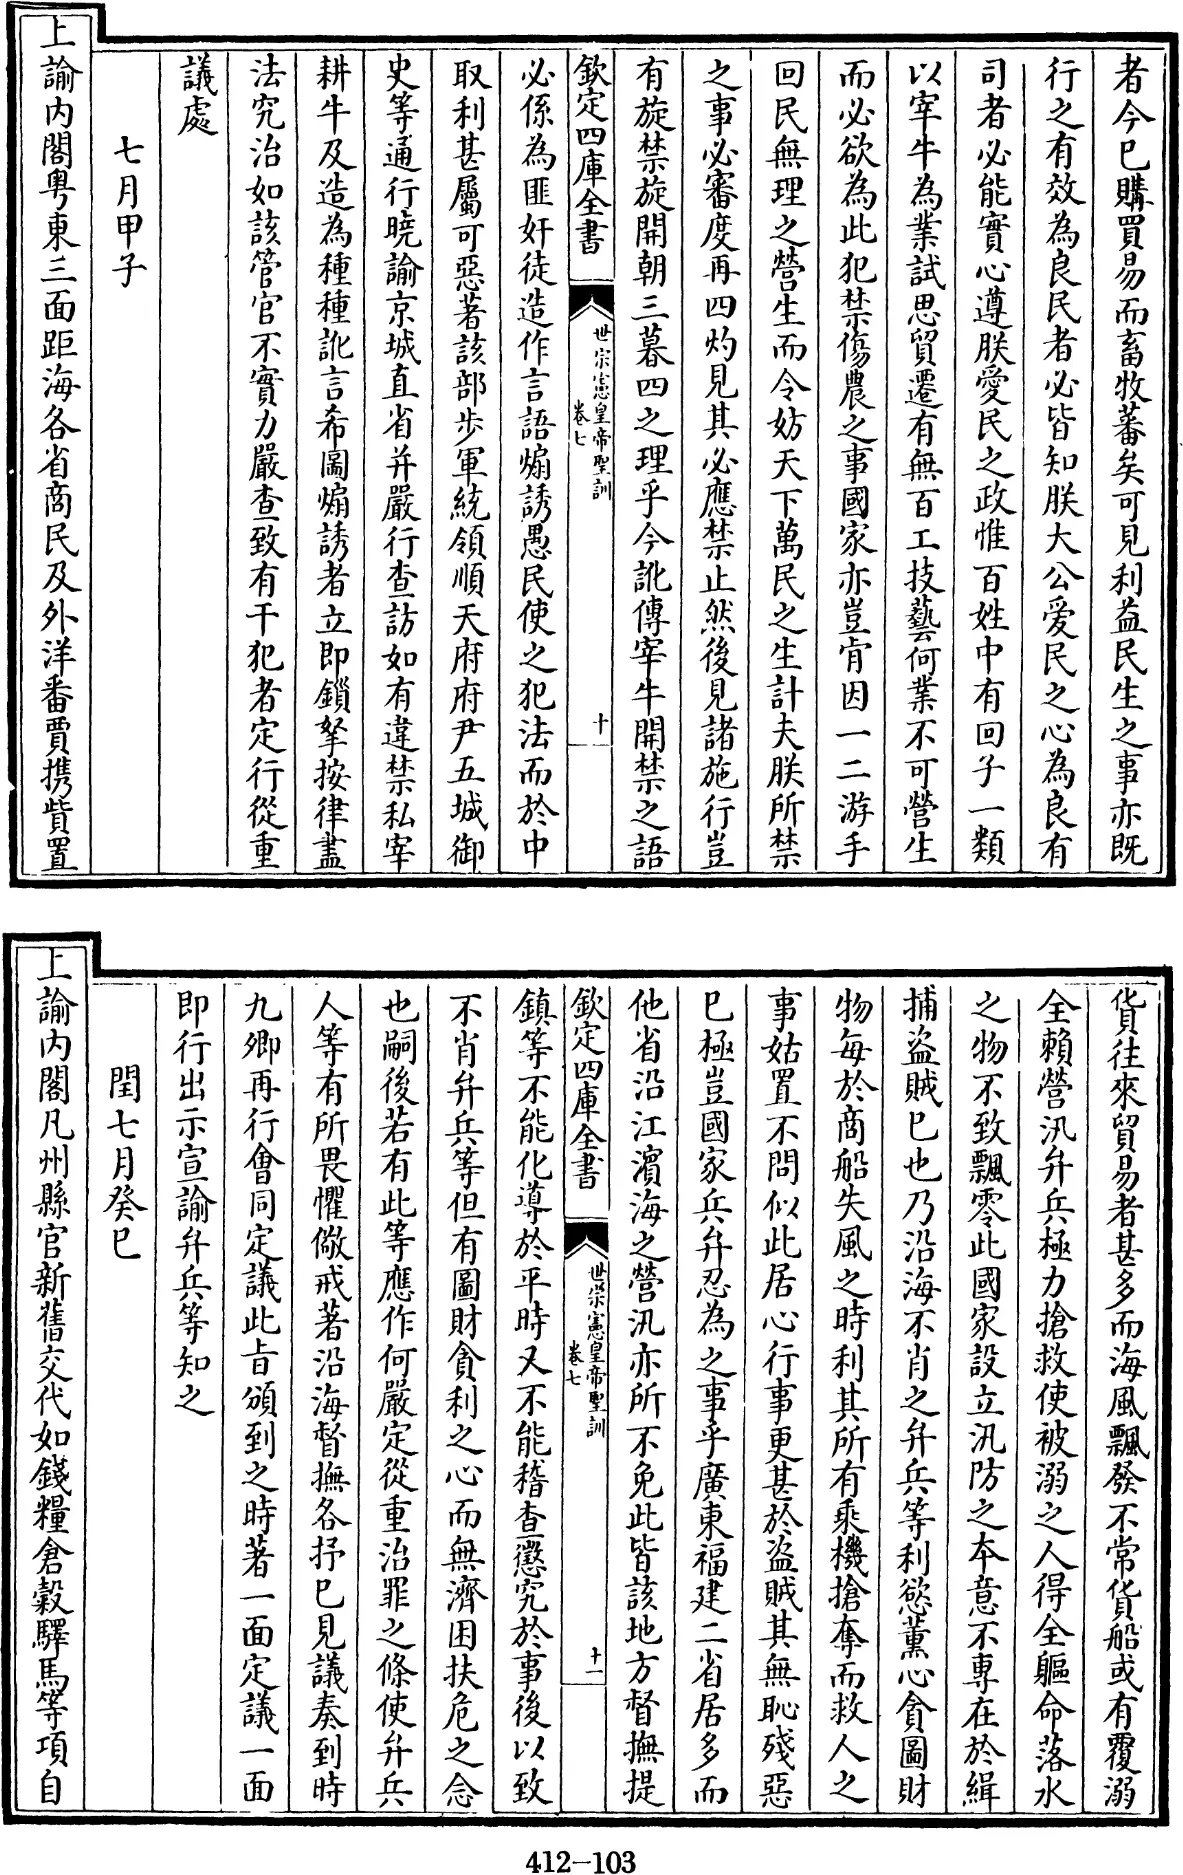 者今已購買易而畜牧蕃矣可見利益民生之事亦既
行之有效為良民者必皆知朕大公愛民之心為良有
司者必能實心遵朕愛民之政惟百姓中有回子一類
以宰牛為業試思貿遷有無百工技藝何業不可營生
而必欲為此犯禁傷農之事國家亦豈肯因一二游手
回民無理之營生而令妨天下萬民之生計夫朕所禁
之事必審度再四灼見其必應禁止然後見諸施行豈
有旋禁旋開朝三暮四之理乎今訛傳宰牛開禁之語
欽定四庫全書
世宗憲皇帝聖訓
卷七
十
必係為匪奸徒造作言語煽誘愚民使之犯法而於中
取利甚屬可惡著該部步軍統領順天府府尹五城御
史等通行曉諭京城直省并嚴行查訪如有違禁私宰
耕牛及造為種種訛言希圖煽誘者立即鎖拏按律盡
法究治如該管官不實力嚴查致有干犯者定行從重
議處
七月甲子
上諭內閣粵東三面距海各省商民及外洋番賈攜貲置
貨往來貿易者甚多而海風飄發不常貨船或有覆溺
全賴營汛弁兵極力搶救使被溺之人得全軀命落水
之物不致飄零此國家設立汛防之本意不專在於緝
捕盜賊已也乃沿海不肖之弁兵等利慾薰心貪圖財
物每於商船失風之時利其所有乘機搶奪而救人之
事姑置不問似此居心行事更甚於盜賊其無恥殘惡
已極豈國家兵弁忍為之事乎廣東福建二省居多而
他省沿江濱海之營汛亦所不免此皆該地方督撫提
欽定四庫全書
世宗憲皇帝聖訓
卷七
十一
鎮等不能化導於平時又不能稽查懲究於事後以致
不肖弁兵等但有圖財貪利之心而無濟困扶危之念
也嗣後若有此等應作何嚴定從重治罪之條使弁兵
人等有所畏懼儆戒著沿海督撫各抒已見議奏到時
九卿再行會同定議此旨頒到之時著一面定議一面
即行出示宣諭弁兵等知之
閏七月癸巳
上諭內閣凡州縣官新舊交代如錢糧倉穀驛馬等項自
412-103